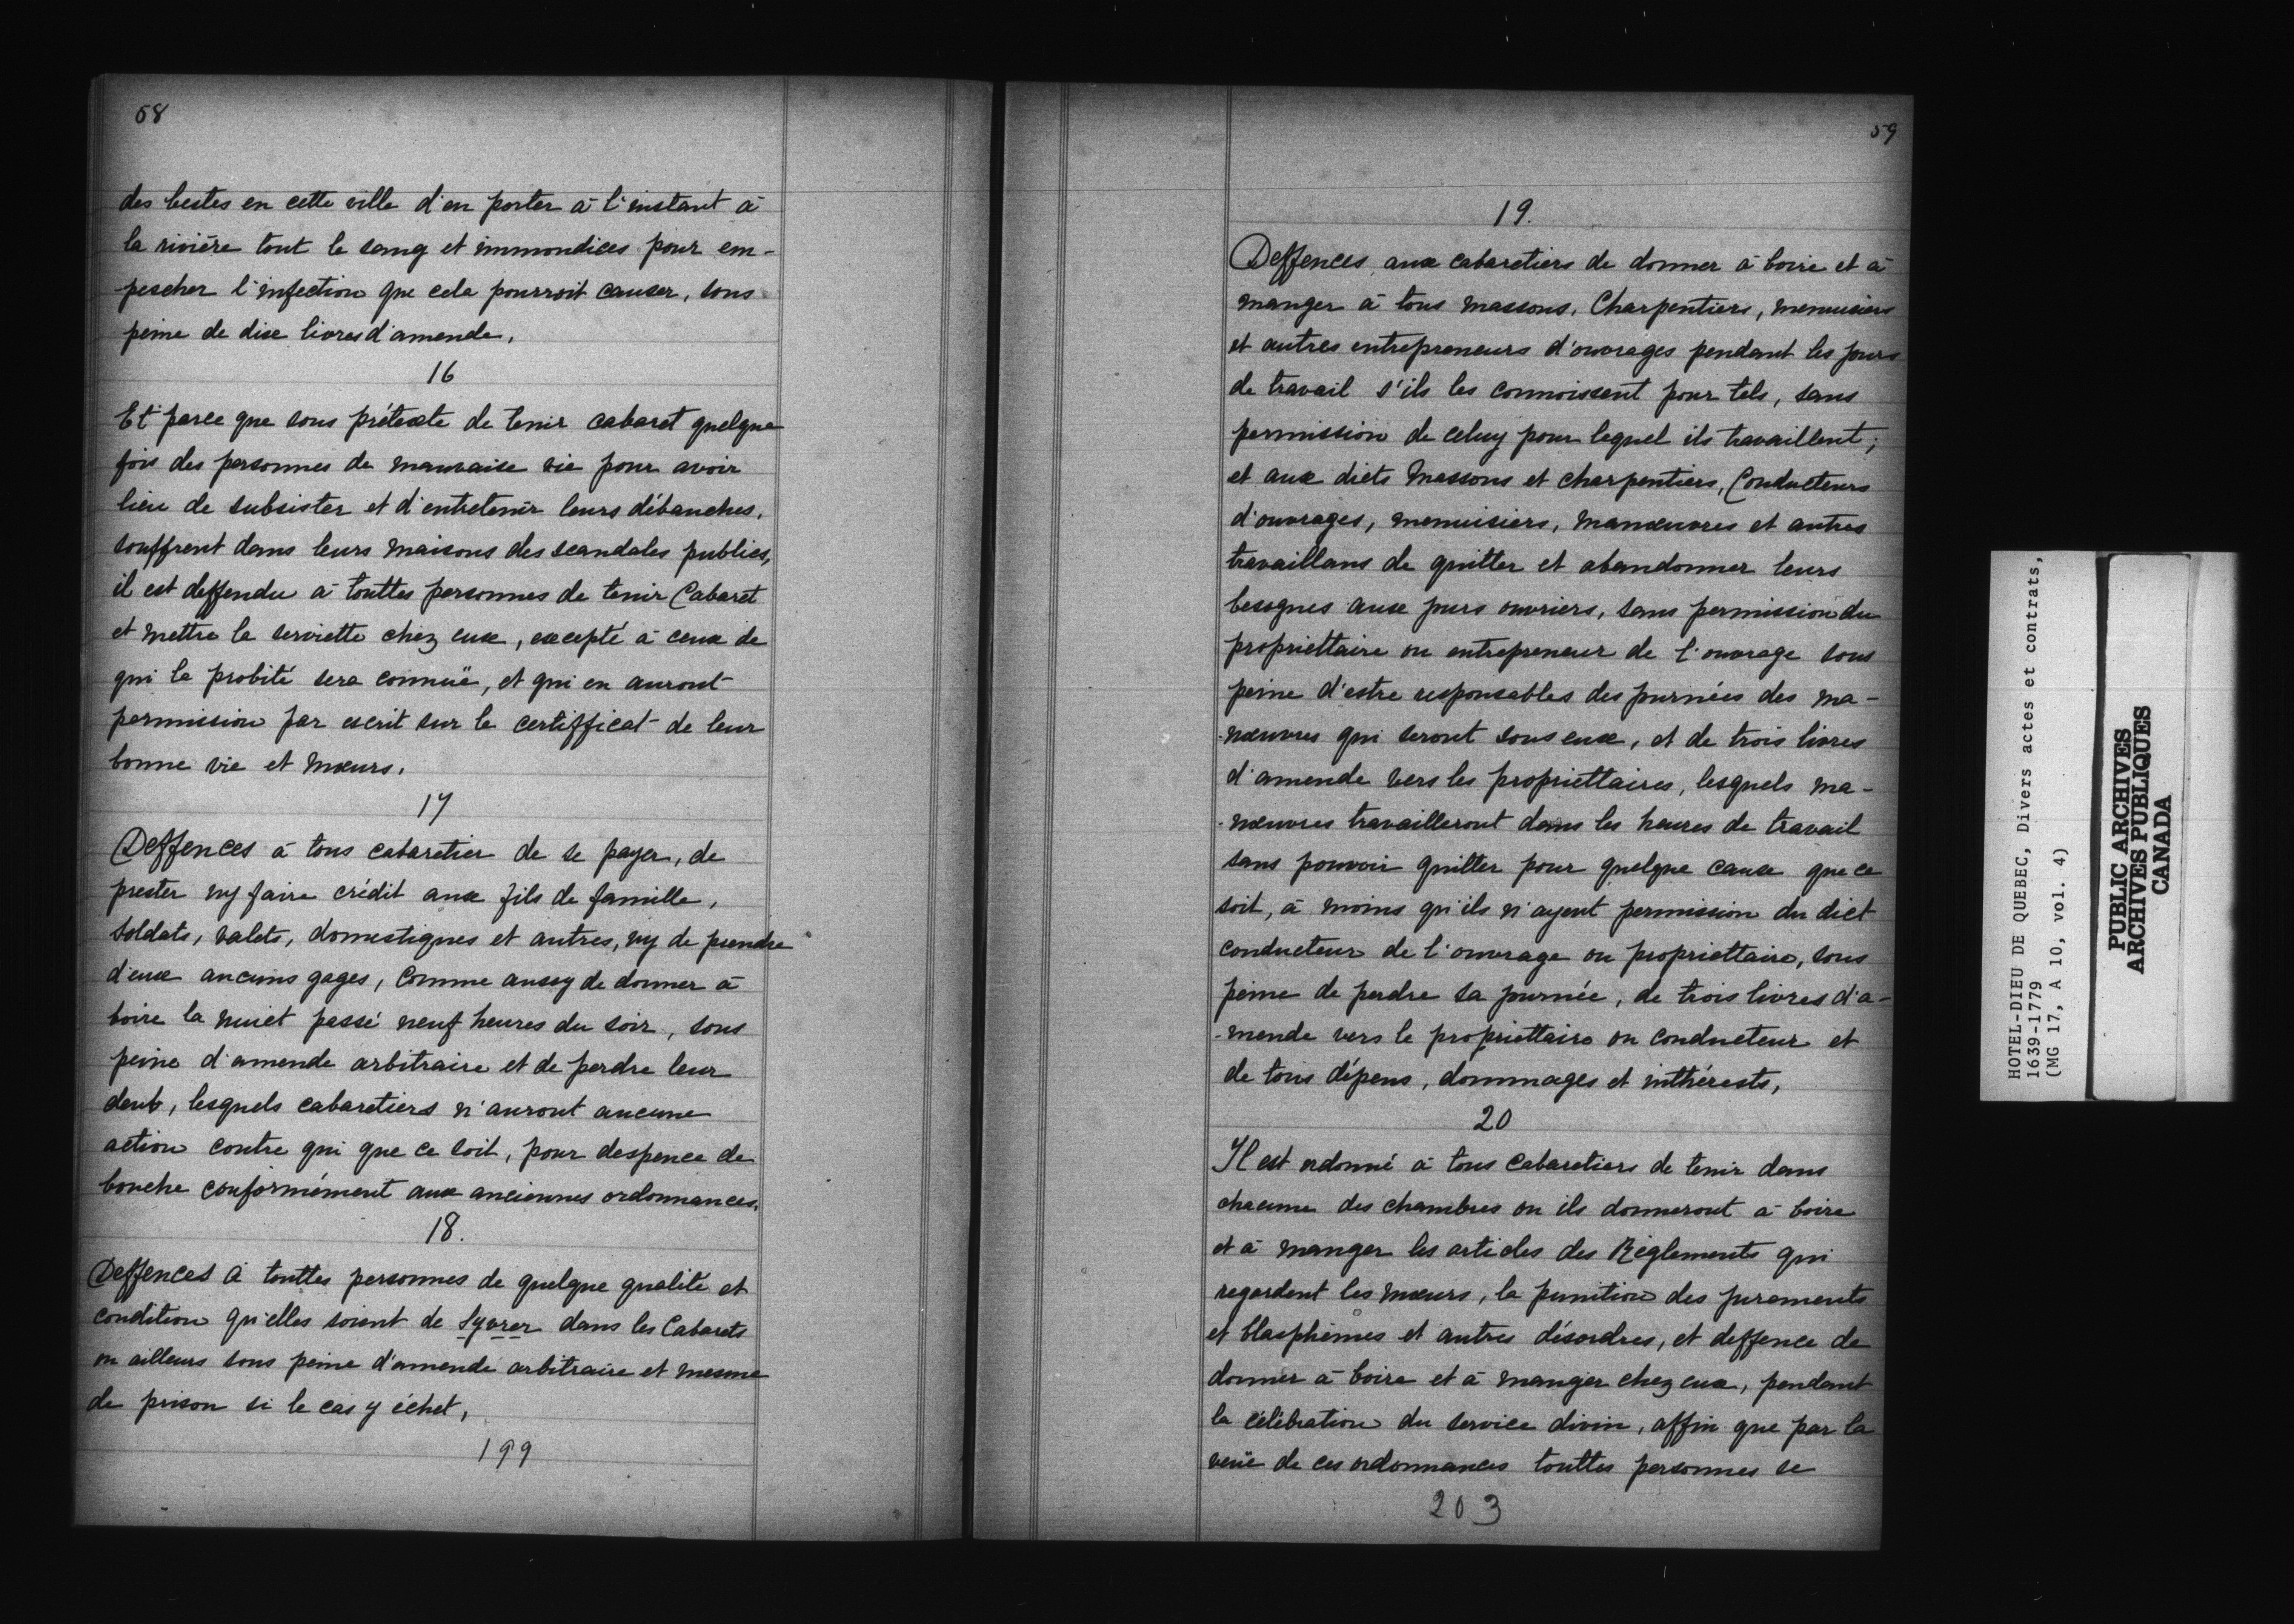 58
des bestes en cette ville d'en porter à l'instant à
la rivière tout le sang et immondices pour em-
pescher l'infection que cela pourroit causer, sous
peine de dix livres d'amende.
16
Et parce que sous prétexte de tenir cabaret quelque
fois des personnes de mauvaise vie pour avoir
lieu de subsister et d'entretenir leurs débauches,
souffrent dans leurs maisons des scandales publics,
il est deffendu à touttes personnes de tenir Cabaret
et mettre la serviette chez eux, excepté à ceux de
qui la probité sera connüe, et qui en auront
permission par escrit sur le certifficat de leur
bonne vie et mœurs.
17
Deffences à tous cabaretier de se payer, de
prester ny faire crédit aux fils de famille,
soldats, valets, domestiques et autres, ny de prendre
d'eux aucuns gages, Comme aussy de donner à
boire la nuict passé neuf heures du soir, sous
peine d'amende arbitraire et de perdre leur
deub, lesquels cabaretiers n'auront aucune
action contre qui que ce soit, pour despence de
bouche conformément aux anciennes ordonnances.
18.
Deffences à touttes personnes de quelque qualité et
condition qu'elles soient de syvrer dans les Cabarets
ou ailleurs sous peine d'amende arbitraire et mesme
de prison si le cas y échet,
199
59
19.
Deffences aux cabaretiers de donner à boire et à
manger à tous massons, Charpentiers, menuisiers
et autres entrepreneurs d'ouvrages pendant les jours
de travail s'ils les connoissent pour tels, sans
permission de celuy pour lequel ils travaillent;
et aux dicts Massons et charpentiers, Conducteurs
d'ouvrages, menuisiers, manœuvres et autres
travaillans de quitter et abandonner leurs
besognes aux jours ouvriers, sans permission du
propriettaire ou entrepreneur de l'ouvrage sous
peine d'estre responsables des journées des ma-
-nœuvres qui seront sous eux, et de trois livres
d'amende vers les propriettaires, lesquels ma-
-nœuvres travailleront dans les heures de travail
sans pouvoir quitter pour quelque cause que ce
soit, à moins qu'ils n'ayent permission du dict
conducteur de l'ouvrage ou propriettaire, sous
peine de perdre sa journée, de trois livres d'a-
-mende vers le propriettaire ou conducteur et
de tous dépens, dommages et inthérests,
20
Il est ordonné à tous Cabaretiers de tenir dans
chacune des chambres ou ils donneront à boire
et à manger les articles des Règlements qui
regardent les mœurs, la punition des jurements
et blasphèmes et autres désordres, et deffence de
donner à boire et à manger chez eux, pendant
la célébration du service divin, affin que par la
veüe de ces ordonnances touttes personnes se
203
HOTEL-DIEU DE QUEBEC, Divers actes et contrats,
1639-1779
(MG 17, A 10, vol. 4)
PUBLIC ARCHIVES
ARCHIVES PUBLIQUES
CANADA